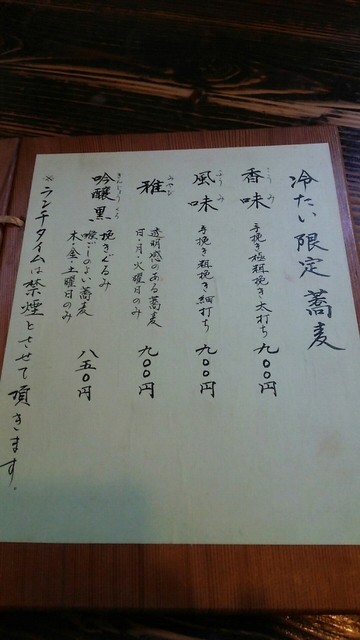 冷たい限定蕎麦
こうみ
香味 手挽き極粗挽き太打ち 九〇〇円
ふうみ
風味 手挽き粗挽き細打ち 九〇〇円
みやび
雅 透明感のある蕎麦 九〇〇円
日・月・火曜日のみ
ぎんじょうくろ
吟醸黒 挽きぐるみ 八五〇円
喉ごしのよい蕎麦
木・金・土曜日のみ
※ランチタイムは禁煙とさせて頂きます。